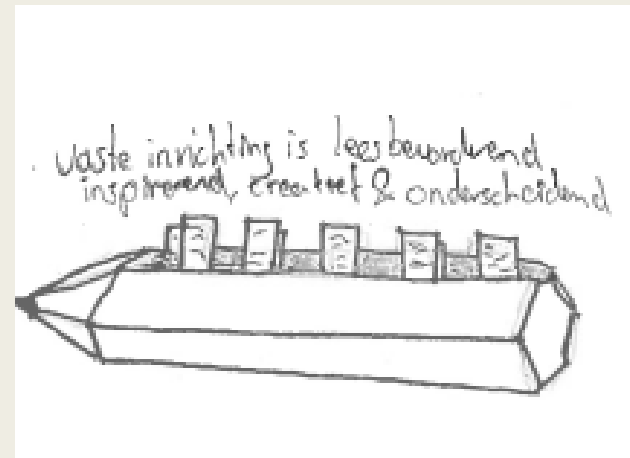 vaste inrichting is leesbevorderend
inspirerend, creatief & onderscheidend